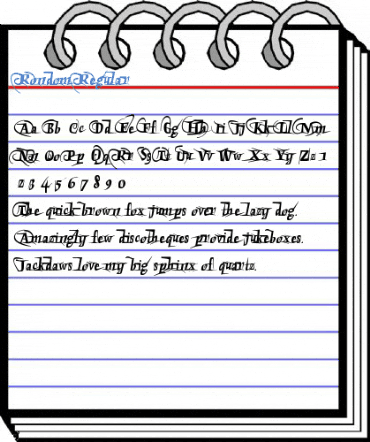 RondomRegular
Aa Bb Cc Dd Ee Ff Gg Hh Ii Jj Kk Ll Mm
Nn Oo Pp Qq Rr Ss Tt Uu Vv Ww Xx Yy Zz 1
2 3 4 5 6 7 8 9 0
The quick brown fox jumps over the lazy dog.
Amazingly few discotheques provide jukeboxes.
Jackdaws love my big sphinx of quartz.